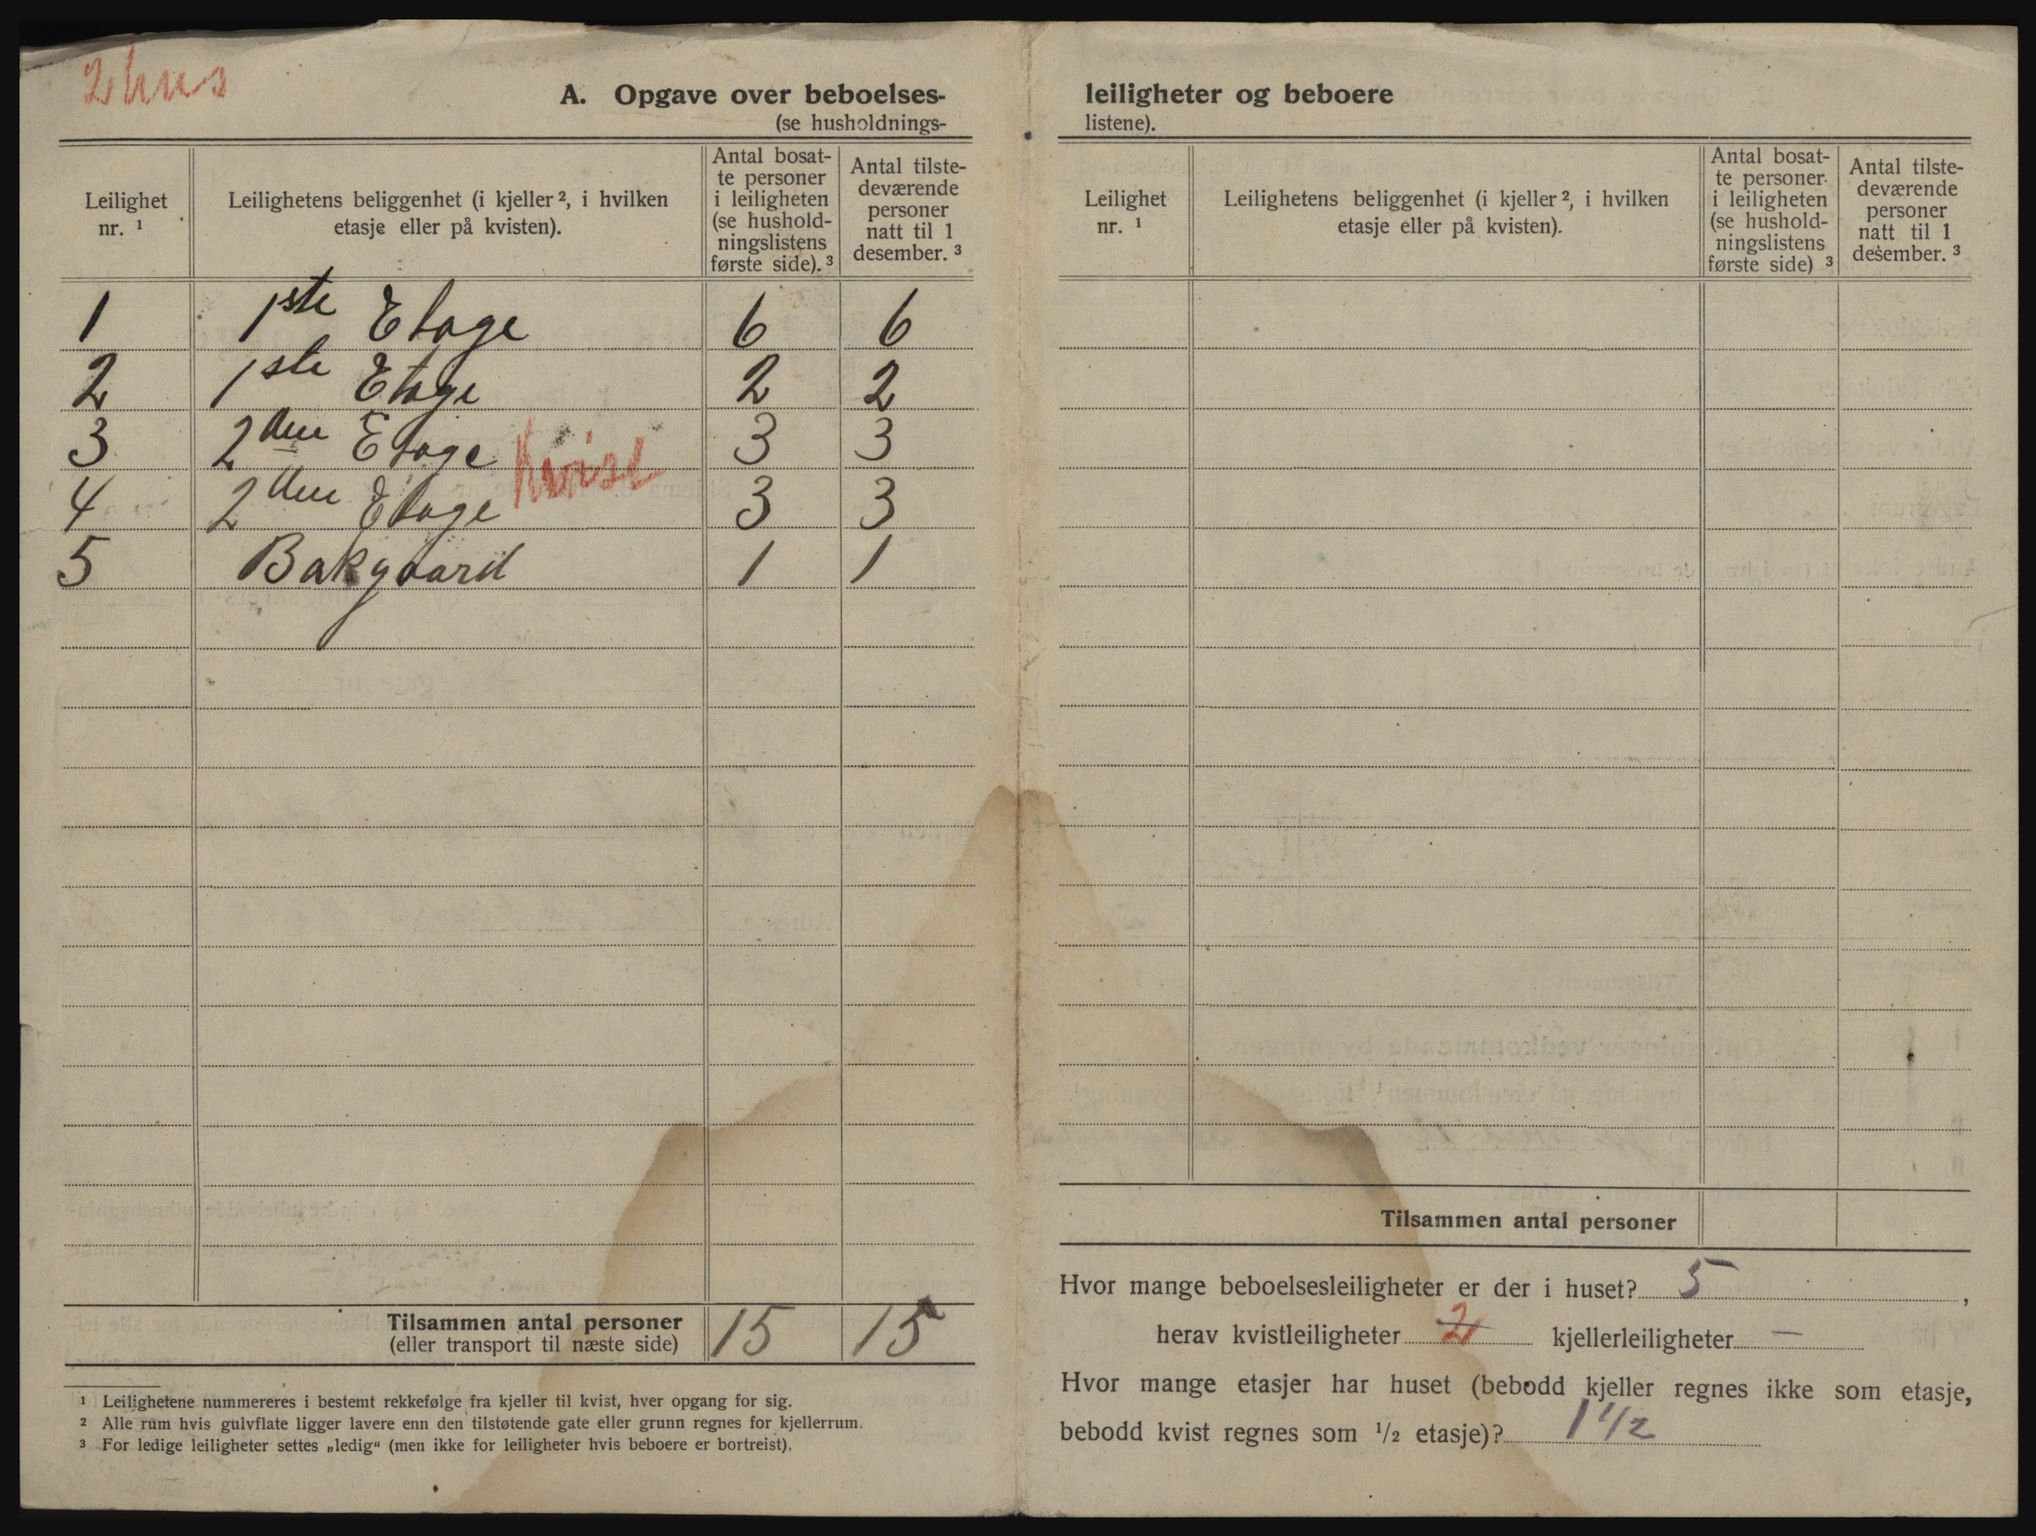 2 hus
A. Opgave over beboelses-
(se husholdnings-
Leilighet nr. ¹
Leilighetens beliggenhet (i kjeller ², i hvilken
etasje eller på kvisten).
Antal bosat-
te personer
i leiligheten
(se hushold-
ningslistens
første side). ³
Antal tilste-
deværende
personer
natt til 1
desember. ³
1 1ste Etage 6 6
2 1ste Etage 2 2
3 2den Etage Kvist 3 3
4 2den Etage 3 3
5 Bakgaard 1 1
Tilsammen antal personer 15 15
(eller transport til næste side)
¹ Leilighetene nummereres i bestemt rekkefølge fra kjeller til kvist, hver opgang for sig.
² Alle rum hvis gulvflate ligger lavere enn den tilstøtende gate eller grunn regnes for kjellerrum.
³ For ledige leiligheter settes „ledig“ (men ikke for leiligheter hvis beboere er bortreist).
leiligheter og beboere
listene).
Leilighet nr. ¹
Leilighetens beliggenhet (i kjeller ², i hvilken
etasje eller på kvisten).
Antal bosat-
te personer
i leiligheten
(se hushold-
ningslistens
første side) ³
Antal tilste-
deværende
personer
natt til 1
desember. ³
Tilsammen antal personer
Hvor mange beboelsesleiligheter er der i huset? 5 ,
herav kvistleiligheter 2 kjellerleiligheter —
Hvor mange etasjer har huset (bebodd kjeller regnes ikke som etasje,
bebodd kvist regnes som ½ etasje)? 1 ½